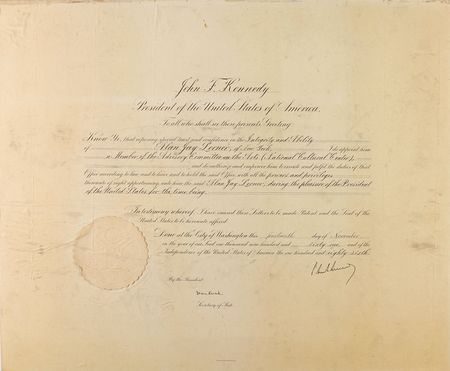 John F. Kennedy
President of the United States of America,
To all who shall see these presents, Greeting:
Know Ye, that reposing special trust and confidence in the Integrity and Ability
of Alan Jay Lerner, of New York, I do appoint him
a Member of the Advisory Committee on the Arts (National Cultural Center),
and do authorize and empower him to execute and fulfil the duties of that
Office according to law and to have and to hold the said Office, with all the powers and privileges
thereunto of right appertaining, unto him the said Alan Jay Lerner, during the pleasure of the President
of the United States for the time being.
In testimony whereof, I have caused these Letters to be made Patent and the Seal of the
United States to be hereunto affixed.
Done at the City of Washington this day of November
in the year of our Lord one thousand nine hundred and sixty-one and of the
Independence of the United States of America the one hundred and eighty-sixth.
By the President:
Dean Rusk
Secretary of State.